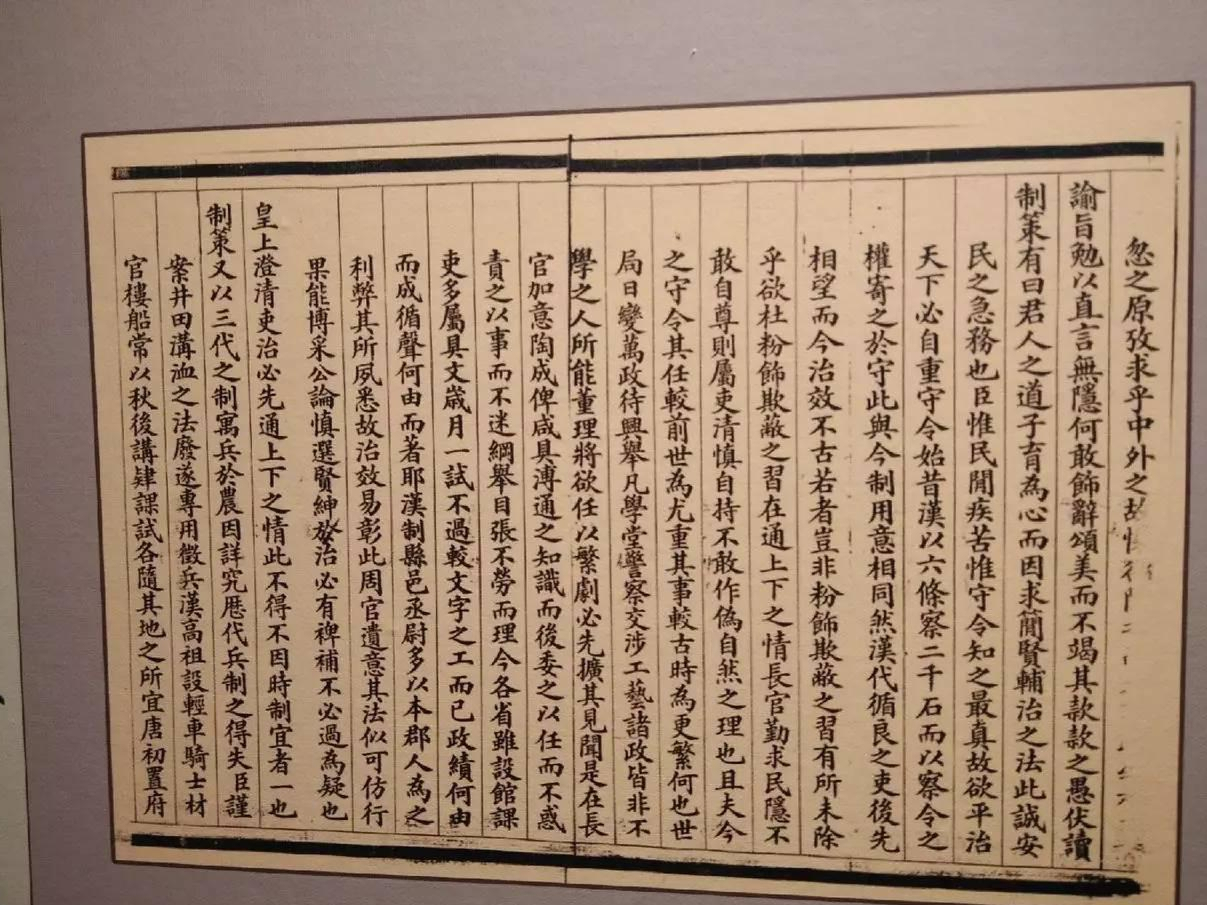 忽之原攷求乎中外之故
諭旨勉以直言無隱何敢飾辭頌美而不竭其款款之愚伏讀
制策有曰君人之道子育為心而因求簡賢輔治之法此誠安
民之急務也臣惟民閒疾苦惟守令知之最真故欲平治
天下必自重守令始昔漢以六條察二千石而以察令之
權寄之於守此與今制用意相同然漢代循良之吏後先
相望而今治效不古若者豈非粉飾欺蔽之習有所未除
乎欲杜粉飾欺蔽之習在通上下之情長官勤求民隱不
敢自尊則屬吏清慎自持不敢作偽自然之理也且夫今
之守令其任較前世為尤重其事較古時為更繁何也世
局日變萬政待興舉凡學堂警察交涉工藝諸政皆非不
學之人所能董理將欲任以繁劇必先擴其見聞是在長
官加意陶成俾咸具溥通之知識而後委之以任而不惑
責之以事而不迷綱舉目張不勞而理今各省雖設館課
吏多屬具文嵗月一試不過較文字之工而已政績何由
而成循聲何由而著耶漢制縣邑丞尉多以本郡人為之
利弊其所夙悉故治效易彰此周官遺意其法似可仿行
果能博采公論慎選賢紳於治必有裨補不必過為疑也
皇上澄清吏治必先通上下之情此不得不因時制宜者一也
制策又以三代之制寓兵於農因詳究歷代兵制之得失臣謹
案井田溝洫之法廢遂專用徵兵漢高祖設輕車騎士材
官樓船常以秋後講肄課試各隨其地之所宜唐初置府